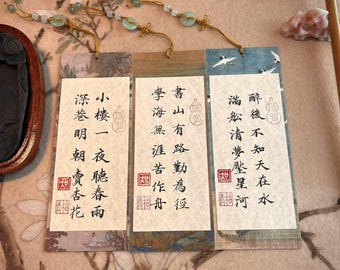 小樓一夜聽春雨
深巷明朝賣杏花
書山有路勤為徑
學海無涯苦作舟
醉後不知天在水
滿船清夢壓星河